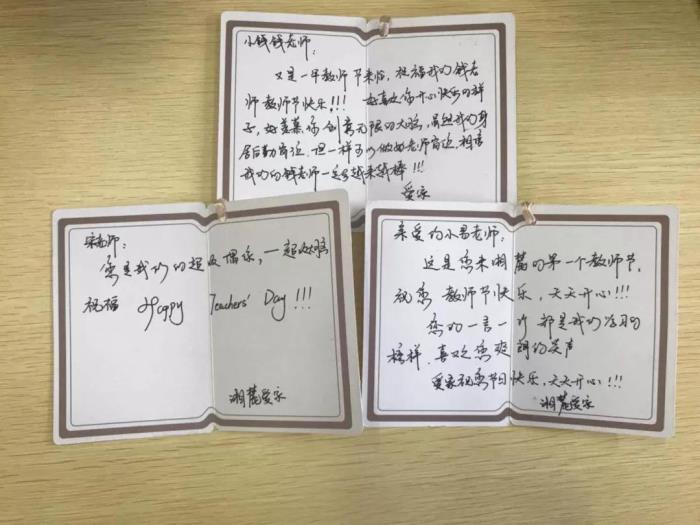 小钱钱老师：
又是一年教师节来临，祝福我的钱老
师教师节快乐!!! 好喜欢你开心快乐的样
子，好羡慕你创意无限的大脑，虽然我们身
居后勤岗位，但一样可以做好老师岗位，相信
我们的钱老师一定会越来越棒!!!
爱家
宋老师：
您是我们的超级偶像，一起
祝福 Happy Teachers' Day!!!
湘麓爱家
亲爱的小易老师：
这是您来湘麓的第一个教师节，
祝您教师节快乐，天天开心!!!
您的一言一行都是我们学习的
榜样，喜欢您爽朗的笑声
爱家祝您节日快乐，天天开心!!!
湘麓爱家